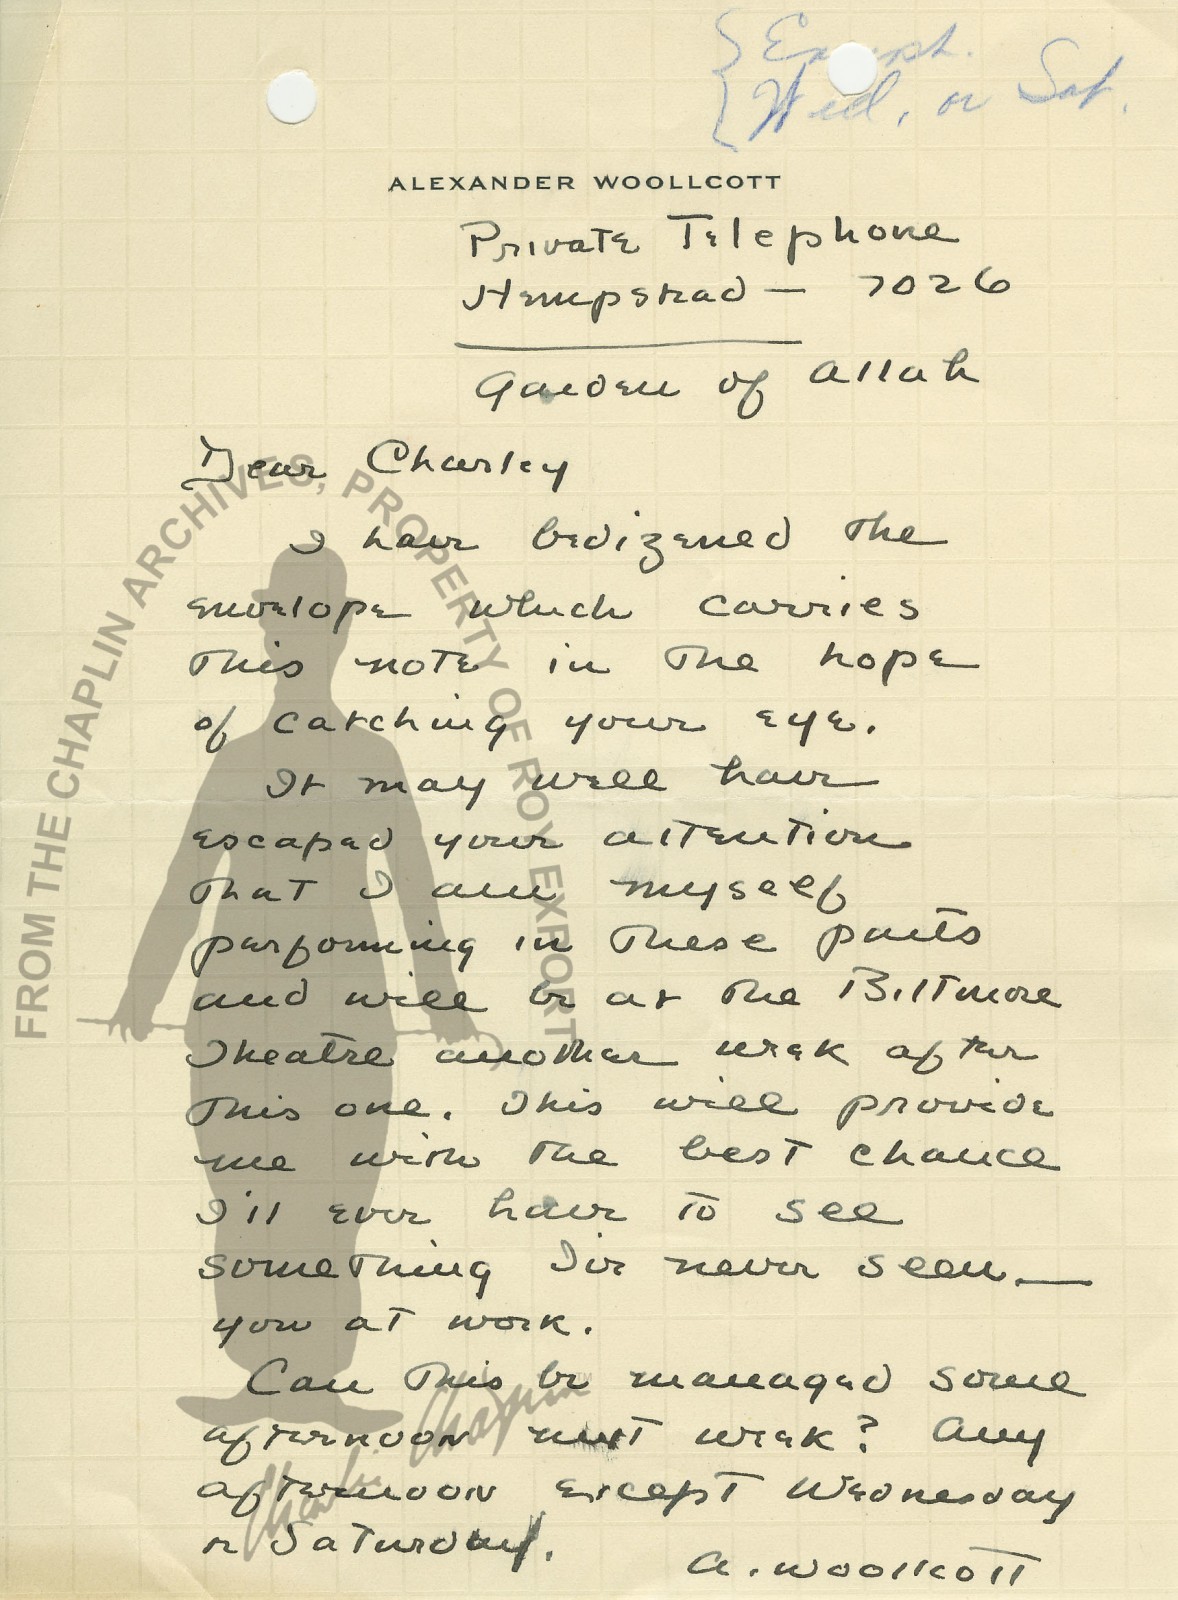 Wed, or Sat.
ALEXANDER WOOLLCOTT
Private Telephone
Hempstead — 7026
Garden of Allah
Dear Charley
I have bedizened the
envelope which carries
this note in the hope
of catching your eye.
It may well have
escaped your attention
that I am myself
performing in these parts
and will be at the Biltmore
Theatre another week after
this one. This will provide
me with the best chance
I'll ever have to see
something I've never seen —
you at work.
Can this be managed some
afternoon next week? Any
afternoon except Wednesday
or Saturday.
A. Woollcott
FROM THE CHAPLIN ARCHIVES, PROPERTY OF ROY EXPORT
Charlie Chaplin